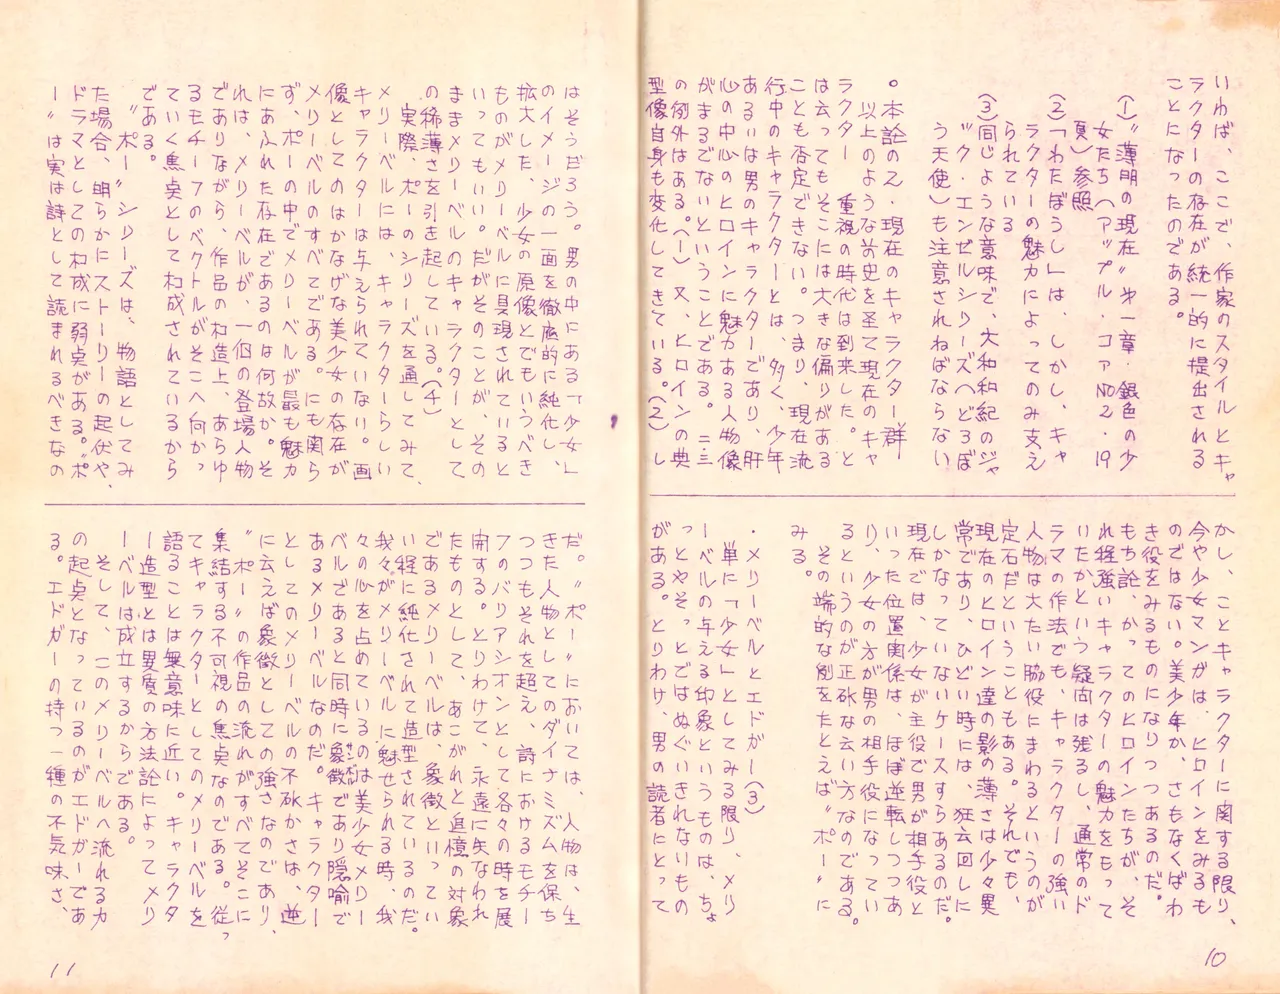 いわば、ここで、作家のスタイルとキャ
ラクターの存在が統一的に提出される
ことになったのである。
(1)〝薄明の現在〟第一章・銀色の少
女たち(アップル・コアNO2・19
頁)参照
(2)「わたぼうし」は、しかし、キャ
ラクターの魅力によってのみ支え
られている
(3)同じような意味で、大和和紀のジャ
ック・エンゼルシリーズへどろぼ
う天使)も注意されねばならない
。本論の2・現在のキャラクター群
以上のような前史を経て現在のキャ
ラクター 重視の時代は到来した。と
は云ってもそこには大きな偏りがある
ことも否定できない。つまり、現在流
行中のキャラクターとは、多く、少年
あるいは男のキャラクターであり、肝
心の中心のヒロインに魅力ある人物像
がまるでないということである。二三
の例外はある。(1)又、ヒロインの典
型像自身も変化してきている。(2)し
かし、ことキャラクターに関する限り、
今や少女マンガは、ヒロインをみるも
のではない。美少年か、さもなくばわ
き役をみるものになりつつあるのだ。
もち論、かってのヒロインたちが、そ
れ程強いキャラクターの魅力をもって
いたかという疑問は残るし、通常のド
ラマの作法でも、キャラクターの強い
人物は大たい脇役にまわるというのが
定石だということもある。それでも、
現在のヒロイン達の影の薄さは少々異
常であり、ひどい時には、狂言回しに
しかなっていないケースすらあるのだ。
現在では、少女が主役で男が相手役と
いった位置関係は、ほぼ逆転しつつあ
り、少女の方が男の相手役になってい
るというのが正確な云い方なのである。
その端的な例をたとえば〝ポー〟に
みる。
・メリーベルとエドガー(3)
単に「少女」としてみる限り、メリ
ーベルの与える印象というものは、ちょ
っとやそっとではぬぐいきれないもの
がある。とりわけ、男の読者にとって
はそうだろう。男の中にある「少女」
のイメージの一面を徹底的に純化し、
拡大した、少女の原像とでもいうべき
ものがメリーベルに具現されていると
いってもいい。だがそのことが、その
ままメリーベルのキャラクターとして
の稀薄さを引き起している。(4)
実際、ポーのシリーズを通してみて、
メリーベルには、キャラクターらしい
キャラクターは与えられていない。画
像としてのはかなげな美少女の存在が
メリーベルのすべてである。にも関ら
ず、ポーの中でメリーベルが最も魅力
にあふれた存在であるのは何故か。そ
れは、メリーベルが、一個の登場人物
でありながら、作品の構造上、あらゆ
るモチーフのベクトルがそこへ向かっ
ていく焦点として構成されているから
である。
〝ポー〟シリーズは、物語としてみ
た場合、明らかにストーリーの起伏や、
ドラマとしての構成に弱点がある。〝ポ
ー〟は実は詩として読まれるべきなの
だ。〝ポー〟においては、人物は、生
きた人物としてのダイナミズムを保ち
つつもそれを超え、詩におけるモチー
フのバリアシオンとして各々の時を展
開する。とりわけて、永遠に失なわれ
たものとして、あこがれと追憶の対象
であるメリーベルは、象徴といってい
い程に純化されて造型されているのだ。
我々がメリーベルに魅せられる時、我
々の心を占めているのは美少女メリー
ベルであると同時に象徴であり隠喩で
あるメリーベルなのだ。キャラクター
としてのメリーベルの不確かさは、逆
に云えば象徴としての強さなのであり、
〝ポー〟の作品の流れがすべてそこに
集結する不可視の焦点なのである。従っ
てキャラクターとしてのメリーベルを
語ることは無意味に近い。キャラクタ
ー造型とは異質の方法論によってメリ
ーベルは成立するからである。
そして、このメリーベルへ流れる力
の起点となっているのがエドガーであ
る。エドガーの持つ一種の不気味さ、
10
11